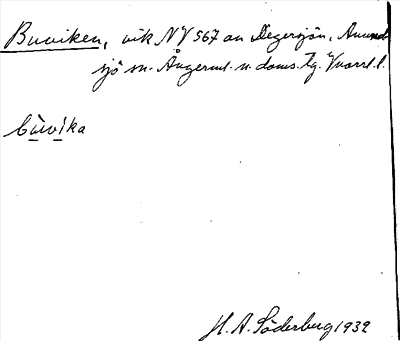 Buviken, vik NV 567 an Degersjön, Anund
sjö sn. Ångerml. n. doms. tg. Vnorrl. l.
bùvika
H. A. Söderberg 1932